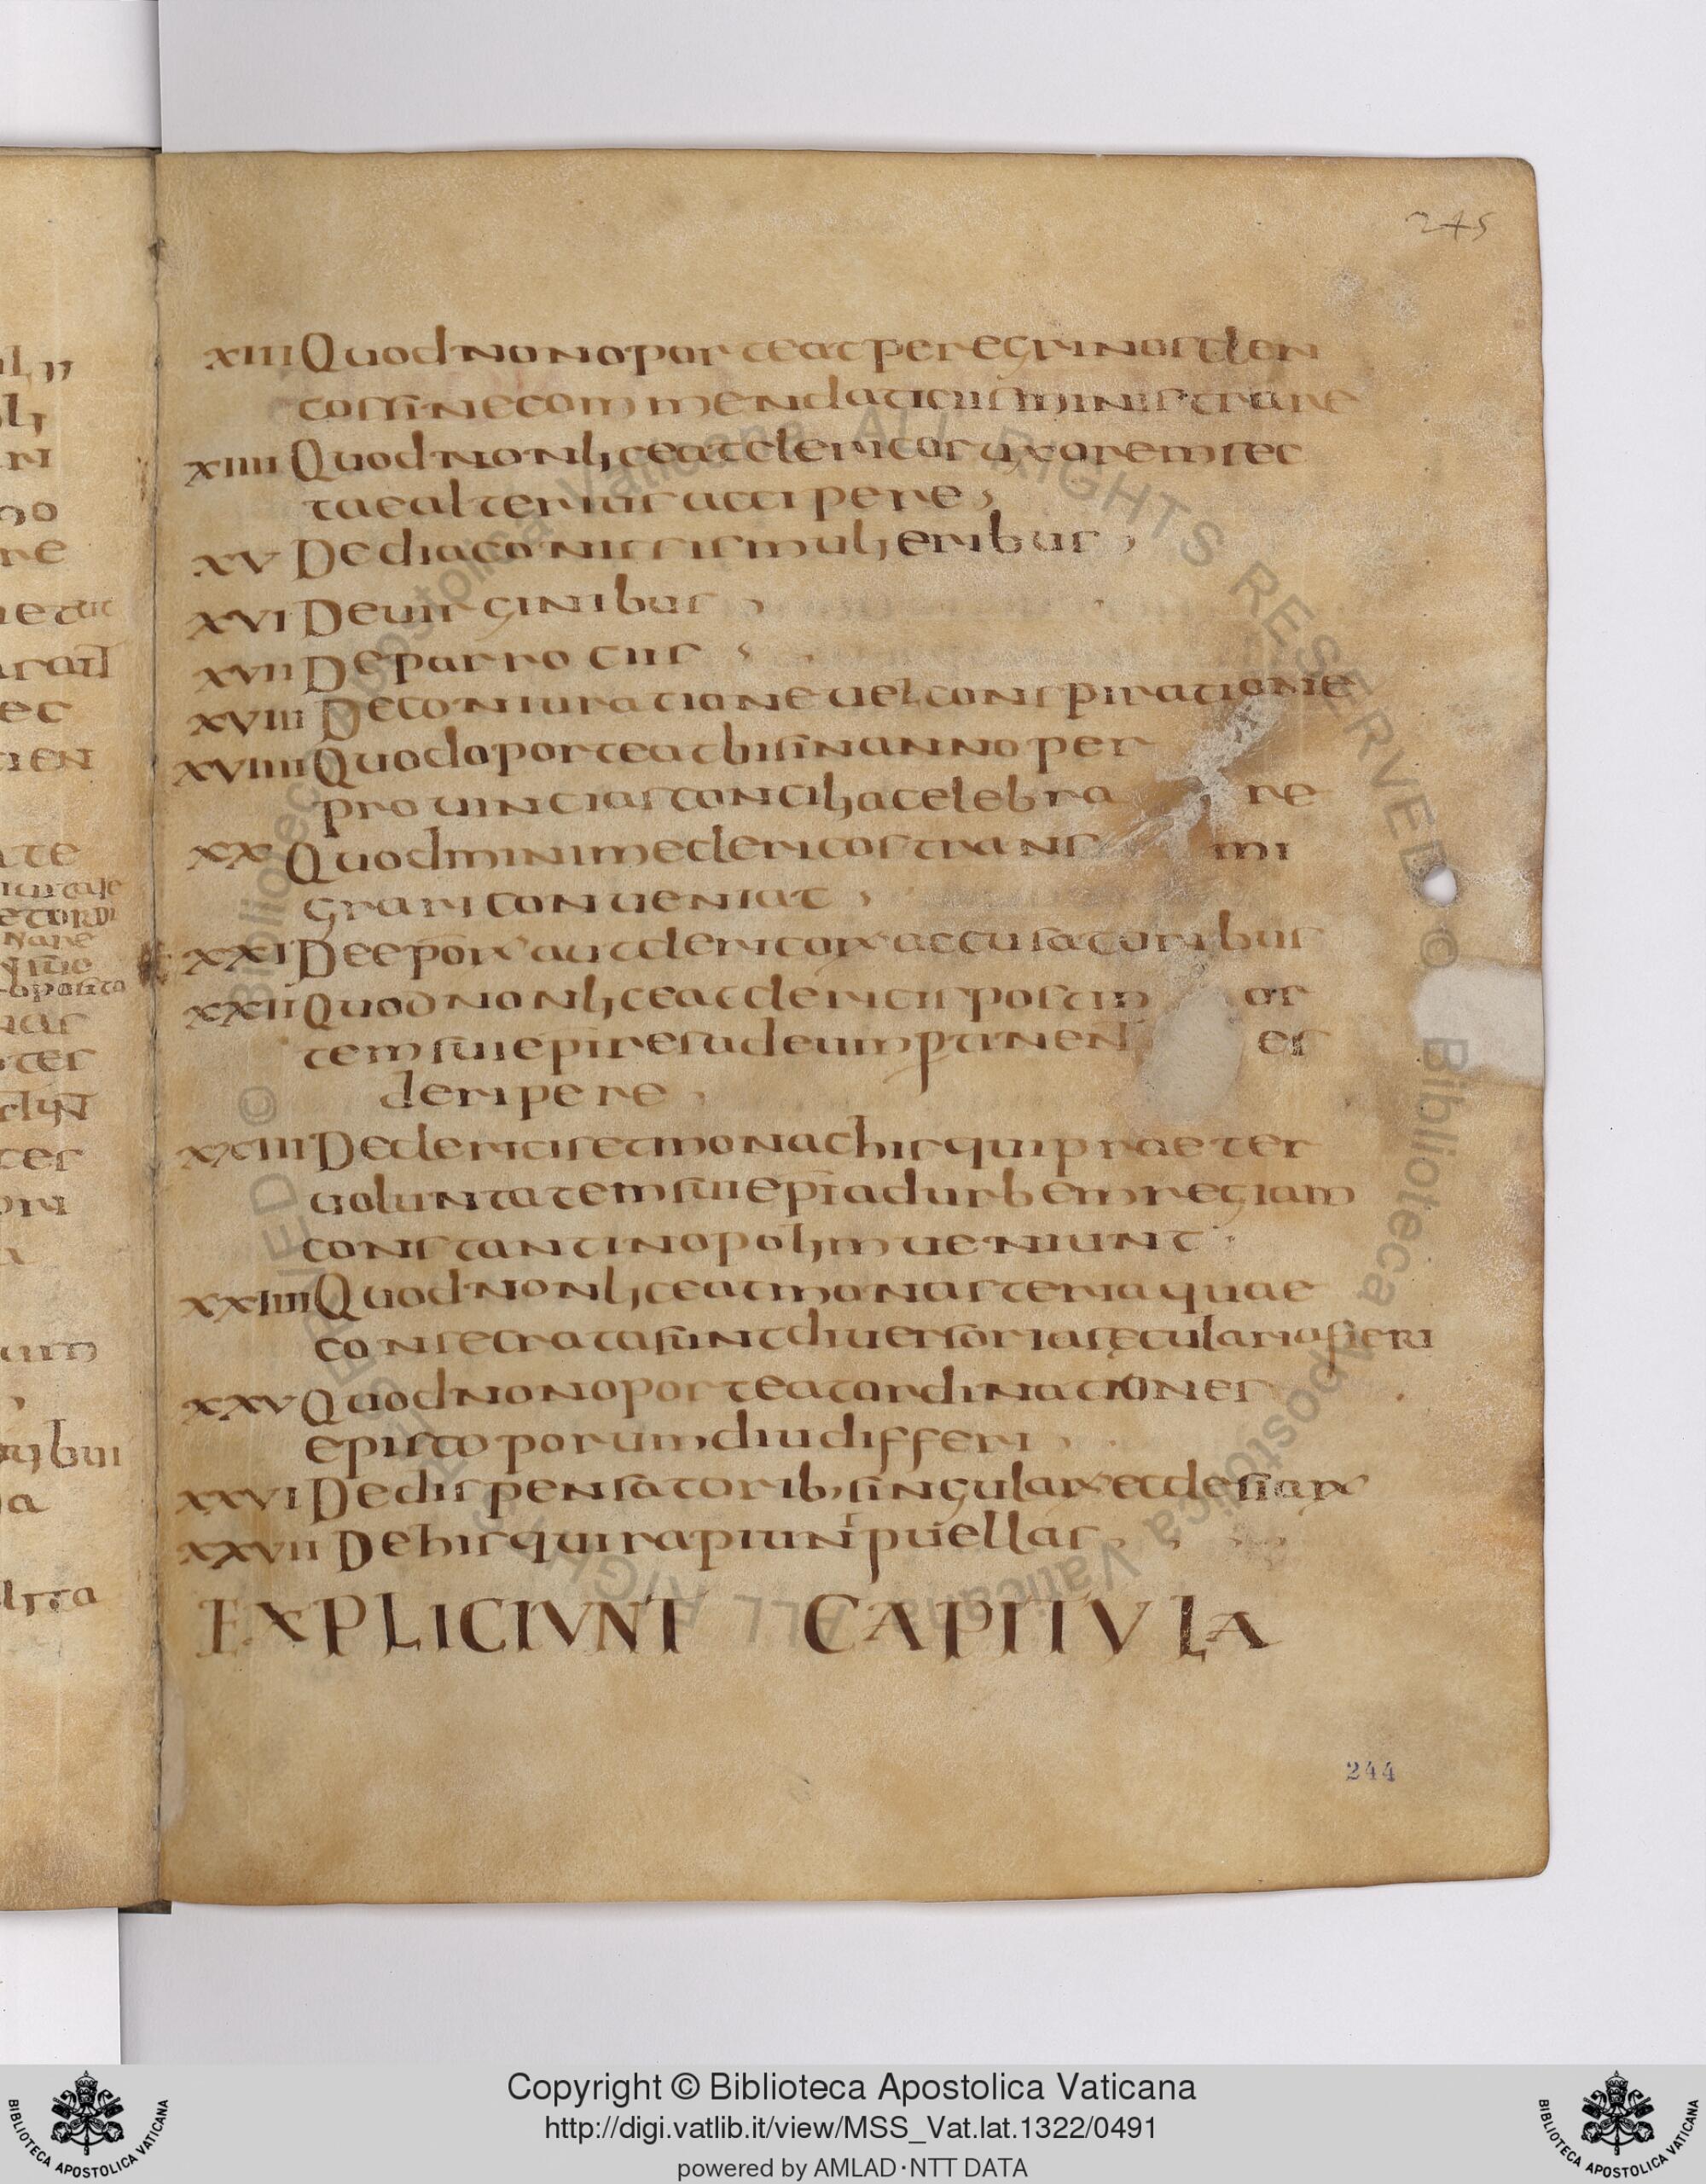 245
XIII Quod non oporteat peregrinos clen
cos sine commendaticiis ministrare
XIIII Quod non liceat clericos uxorem sec
tae alterius accipere,
XV De diaconissis mulieribus,
XVI De uirginibus,
XVII De parrociis,
XVIII De coniuratione uel conspiratione
XVIIII Quod oporteat bis in anno per
prouincias concilia celebra re
XX Quod minime clericos trans mi
grari conueniat,
XXI De epōrꝝ aut clericorꝝ accusatoribus
XXII Quod non liceat clericis post m or
tem sui ep̄i res ad eum ptinen es
deripere
XXIII De clericis et monachis qui praeter
uoluntatem sui ep̄i ad urbem regiam
constantinopolim ueniunt
XXIIII Quod non liceat monasteria quae
consecrata sunt diuersoria sęcularia fieri
XXV Quod non oporteat ordinationes
episcoporum diu differi
XXVI De dispensatorib, singularꝝ
XXVII De his qui rapiunt puellas,
EXPLICIUNT CAPITULA
244
Copyright © Biblioteca Apostolica Vaticana
http://digi.vatlib.it/view/MSS_Vat.lat.1322/0491
powered by AMLAD·NTT DATA